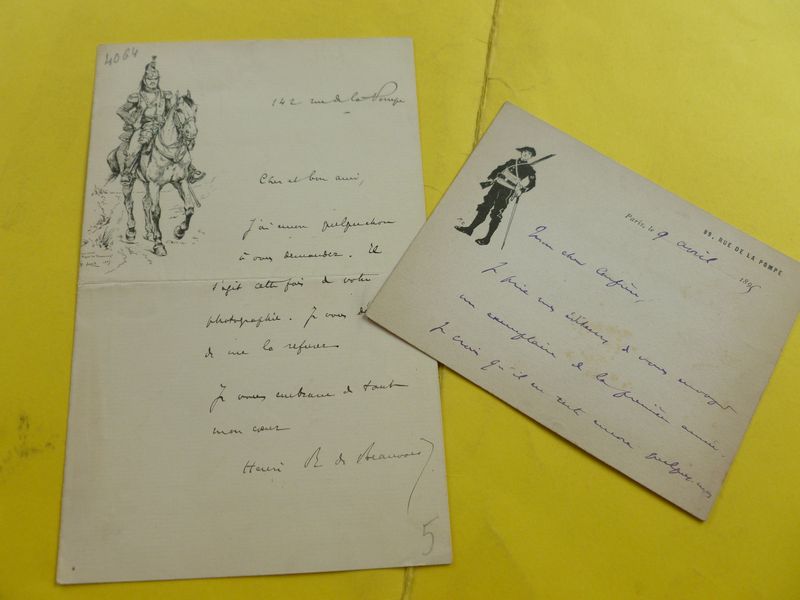 4064
142 rue de la Pompe
Cher et bon ami,
J'ai encore quelque chose
à vous demander. Il
s'agit cette fois de votre
photographie. Je vous
de me la refuser
Je vous embrasse de tout
mon cœur
Henri R. de Beauvois
5
99, RUE DE LA POMPE
Paris, le 9 avril 1895
Mon cher Confrère,
Je prie mes éditeurs de vous envoyer
un exemplaire de la première année.
Je crois qu'il en reste encore quelques-uns